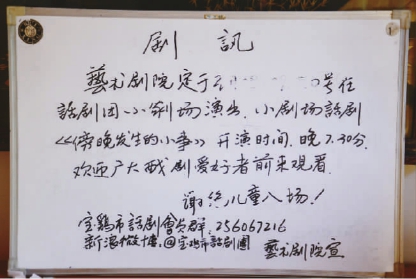 剧 訊
藝术剧院定于 号在
話剧团小剧场演出.小剧场話剧
《傍晚发生的小事》开演时间.晚7.30分.
欢迎广大戏剧爱好者前来观看.
谢绝儿童入场!
宝鷄市話剧會员群:256067216
新浪微博:@宝鸡市話剧團
藝术剧院宣